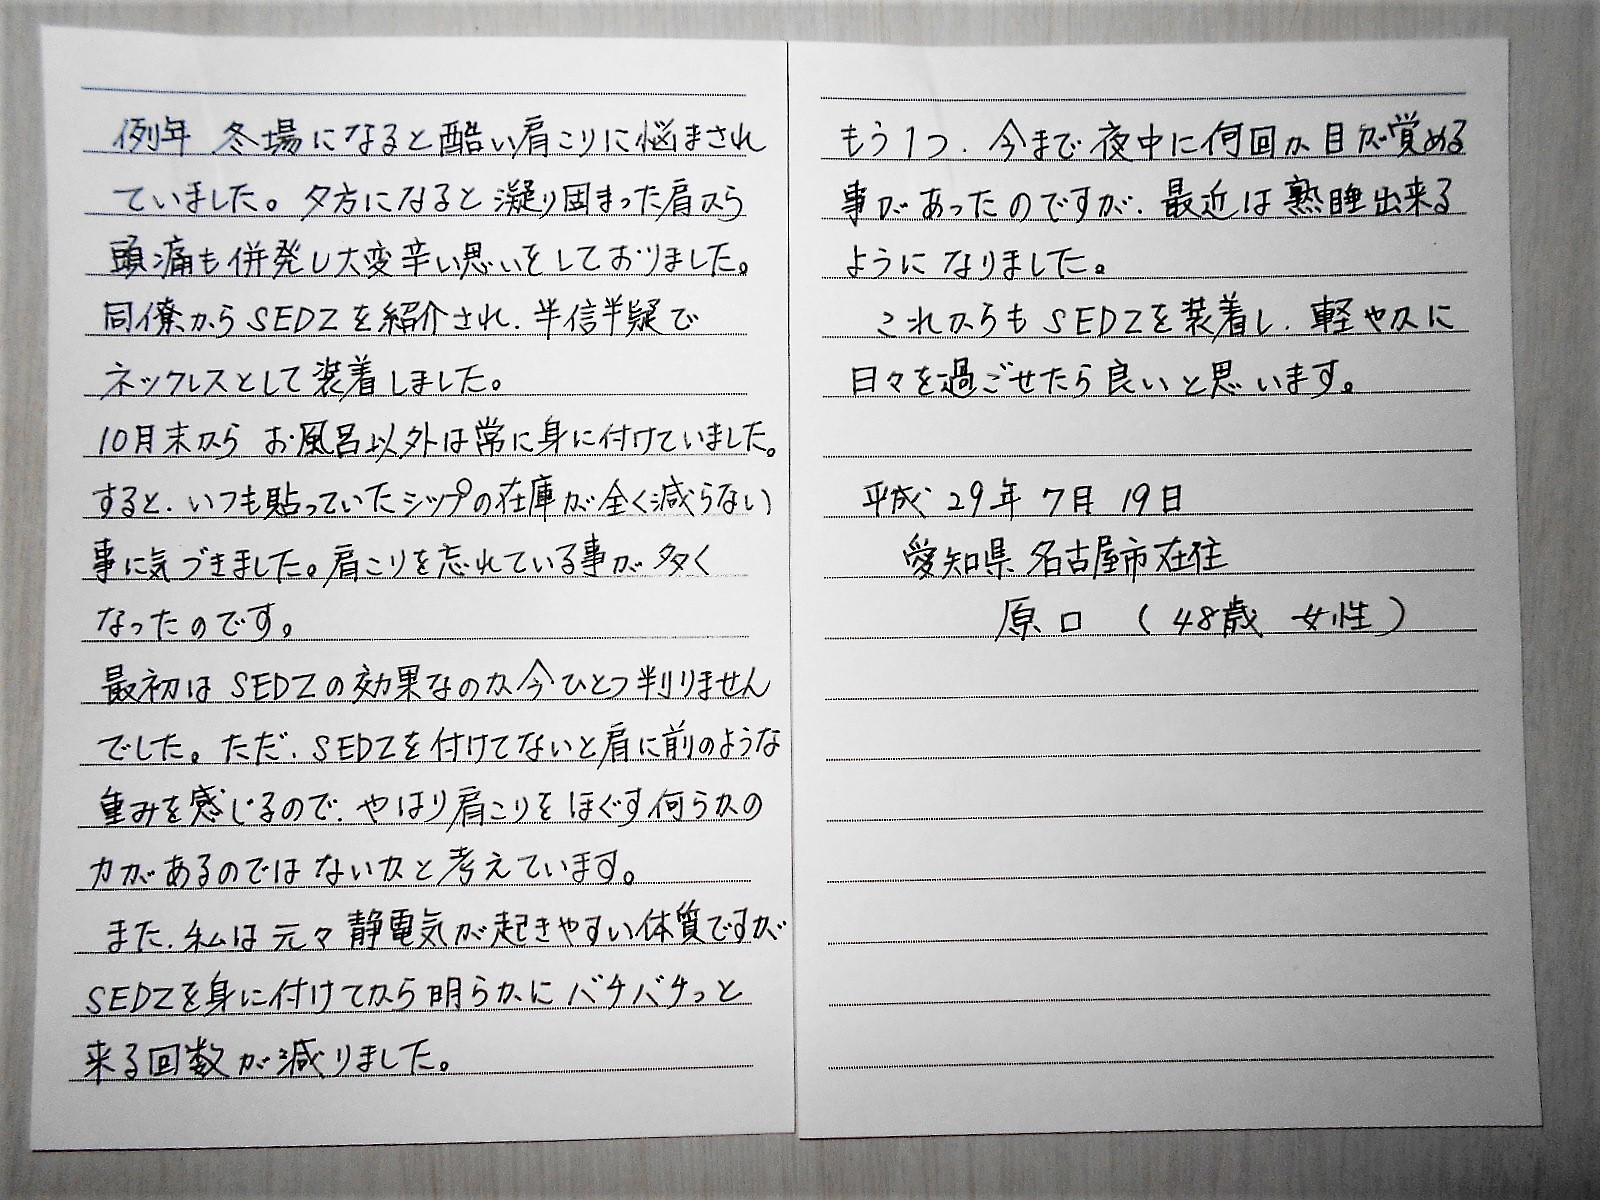 例年 冬場になると酷い肩こりに悩まされ
ていました。夕方になると凝り固まった肩から
頭痛も併発し大変辛い思いをしておりました。
同僚からSEDZを紹介され、半信半疑で
ネックレスとして装着しました。
10月末から お風呂以外は常に身に付けていました。
すると、いつも貼っていたシップの在庫が全く減らない
事に気づきました。肩こりを忘れている事が多く
なったのです。
最初はSEDZの効果なのか今ひとつ判りません
でした。ただ、SEDZを付けてないと肩に前のような
重みを感じるので、やはり肩こりをほぐす何らかの
力があるのではないかと考えています。
また、私は元々静電気が起きやすい体質ですが
SEDZを身に付けてから明らかにバチバチっと
来る回数が減りました。
もう1つ、今まで夜中に何回か目が覚める
事があったのですが、最近は熟睡出来る
ようになりました。
これからもSEDZを装着し、軽やかに
日々を過ごせたら良いと思います。
平成29年7月19日
愛知県名古屋市在住
原口 (48歳 女性)